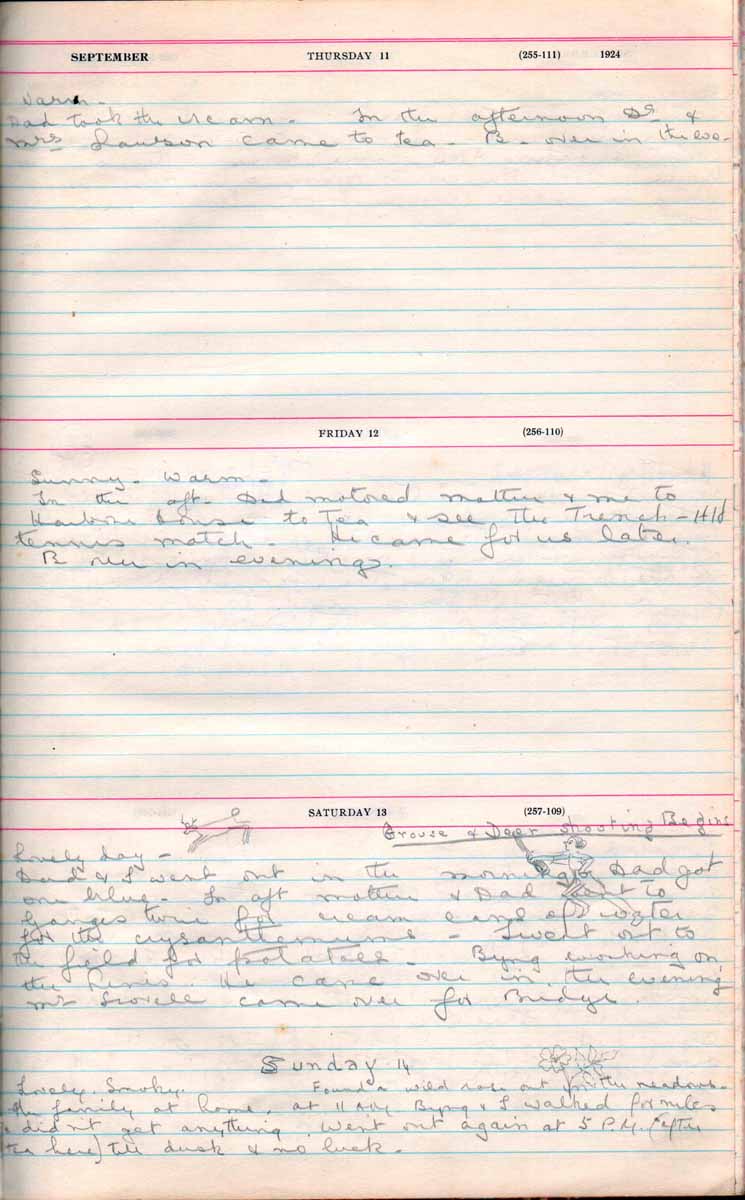 SEPTEMBER THURSDAY 11 (255-111) 1924
Warm -
Dad took the cream - In the afternoon Dr &
Mrs Lawson came to tea - B - over in the eve -
FRIDAY 12 (256-110)
Sunny - Warm -
In the aft - Dad motored mother & me to
Harbour House to Tea & see the Trench - Hld
tennis match - He came for us later.
B over in evenings.
SATURDAY 13 (257-109)
Grouse & Deer shooting Begins
Lovely day -
Dad & I went out in the morning & Dad got
one blue - In aft mother & Dad went to
Ganges twice for cream cans of water
for the crysanthemums - I went out to
the field for potatoes - Byng working on
the He came over in the evening
Mr Scovell came over for Bridge.
Sunday 14
Lovely. Smoky. Found a wild rose out in the meadows -
the family at home. at 11 A.M. Byng & I walked for miles
& didn't get anything. Went out again at 5 P.M. (after
tea here) till dusk & no luck -